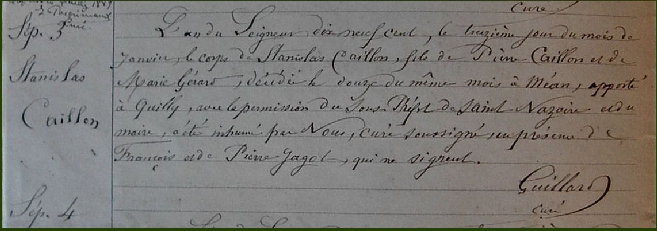 curé
Sép. 3
Stanislas
Caillon
L'an du Seigneur dix neuf cent, le treizième jour du mois de
Janvier, le corps de Stanislas Caillon, fils de Pierre Caillon et de
Marie Gérard, décédé le douze du même mois à Méan, apporté
à Quilly, avec la permission du Sous Préfet de Saint Nazaire et du
maire, a été inhumé par Nous, curé soussigné, en présence de
François et de Pierre Jagot, qui ne signent.
Guillard
curé
Sép. 4